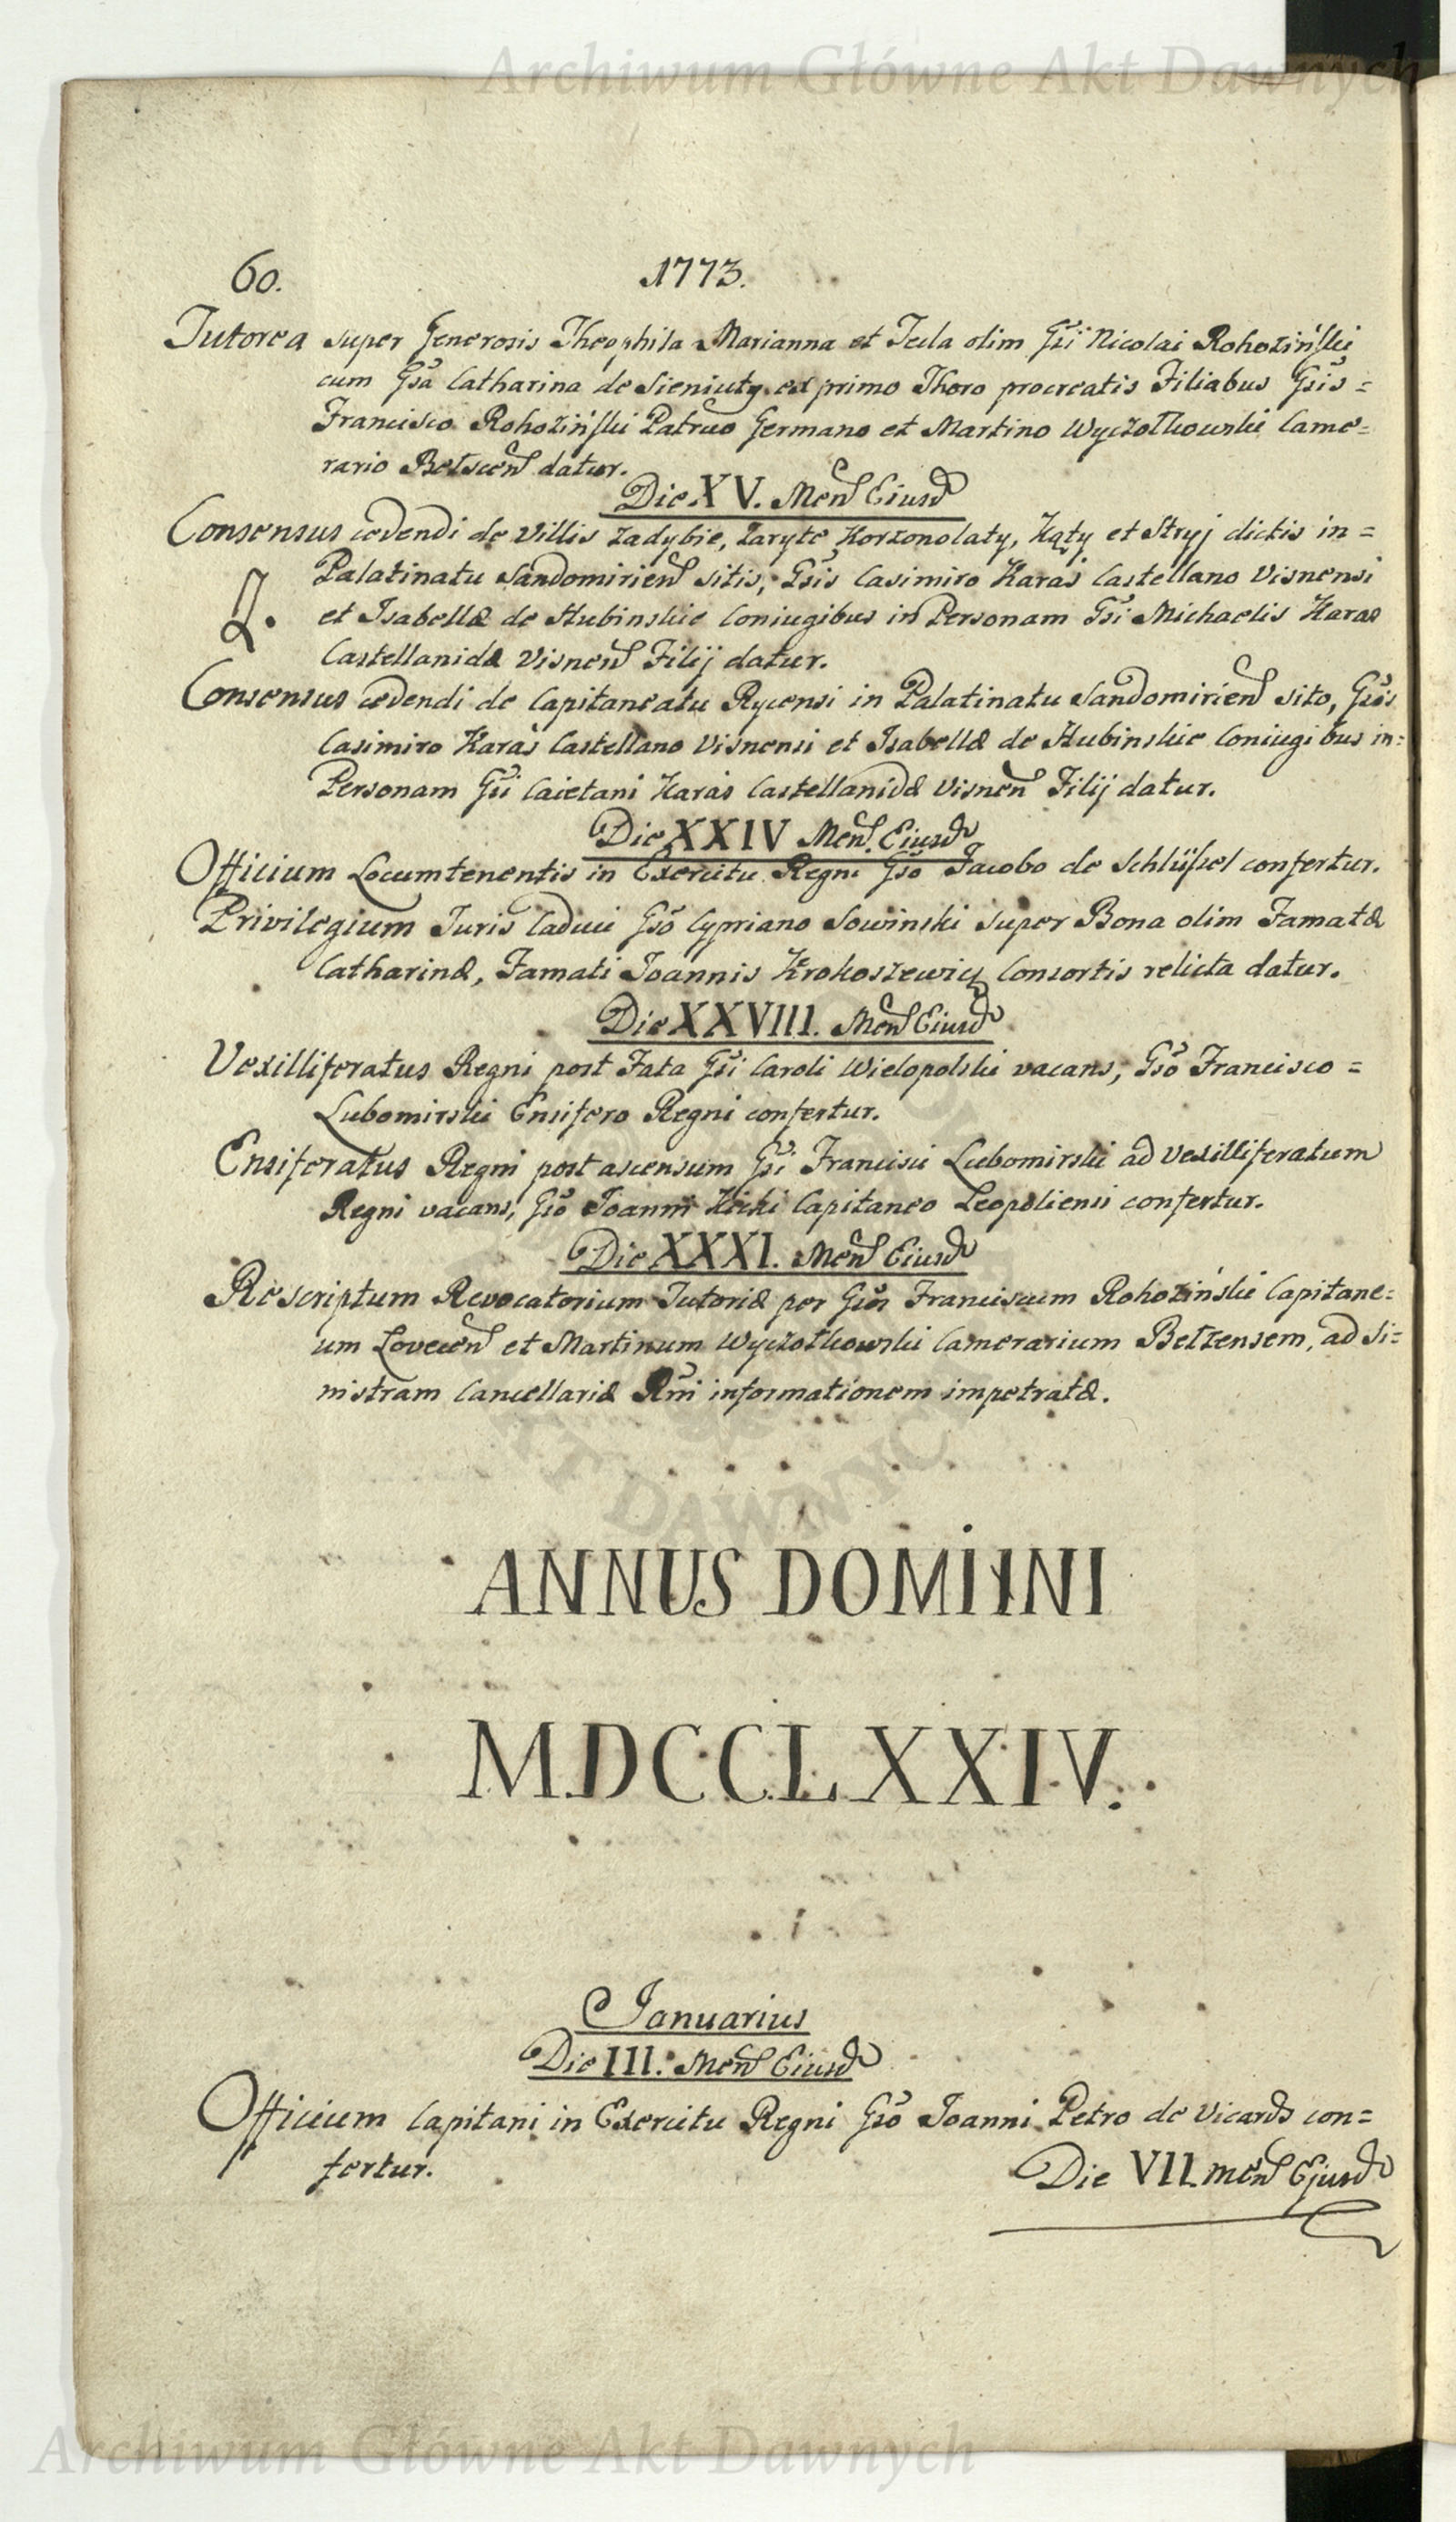 Archiwum Główne Akt Dawnych
60. 1773.
Tutorea super Generosis Theophila Marianna et Tecla olim Gsi Nicolai Rohoziński
cum Gsa Catharina de Sieniuty ex primo Thoro procreatis Filiabus Gsis =
Francisco Rohoziński Patruo Germano et Martino Wyczołkowski Came=
rario Belscen datur.
Die XV. Men Eiusd
Consensus cedendi de Villis Zadybie, Zaryte Korzonolaty, Kąty et Stryj dictis in =
Palatinatu Sandomirien sitis, Gsis Casimiro Karaś Castellano Visnensi
2. et Isabellæ de Hubinskie Coniugibus in Personam Gsi Michaelis Karaś
Castellanidæ Visnen Filij datur.
Consensus cedendi de Capitaneatu Rycensi in Palatinatu Sandomirien sito, Gsis
Casimiro Karaś Castellano Visnensi et Isabellæ de Hubinskie Coniugibus in=
Personam Gsi Caietani Karaś Castellanidæ Visnen Filij datur.
Die XXIV Men. Eiusd
Officium Locumtenentis in Exercitu Regni Gso Jacobo de Schlüssel confertur.
Privilegium Juris Caduci Gso Cypriano Sowinski super Bona olim Famatæ
Catharinæ, Famati Joannis Krokoszewicz Consortis relicta datur.
Die XXVIII. Men Eiusd
Vexilliferatus Regni post Fata Gsi Caroli Wielopolski vacans, Gso Francisco =
Lubomirski Ensifero Regni confertur.
Ensiferatus Regni post ascensum Gsi Francisci Lubomirski ad Vexilliferatum
Regni vacans, Gso Joanni Kicki Capitaneo Leopoliensi confertur.
Die XXXI. Men Eiusd
Rescriptum Revocatorium Tutoriæ per Gsos Franciscum Rohoziński Capitane=
um Lovecen et Martinum Wyczołkowski Camerarium Belzensem, ad si=
nistram Cancellariæ Rni informationem impetratæ.
ANNUS DOMINI
MDCCLXXIV.
Januarius
Die III. Men Eiusd
Officium Capitani in Exercitu Regni Gso Joanni Petro de Vicards con=
fertur.
Die VII. men Ejusd
Archiwum Główne Akt Dawnych